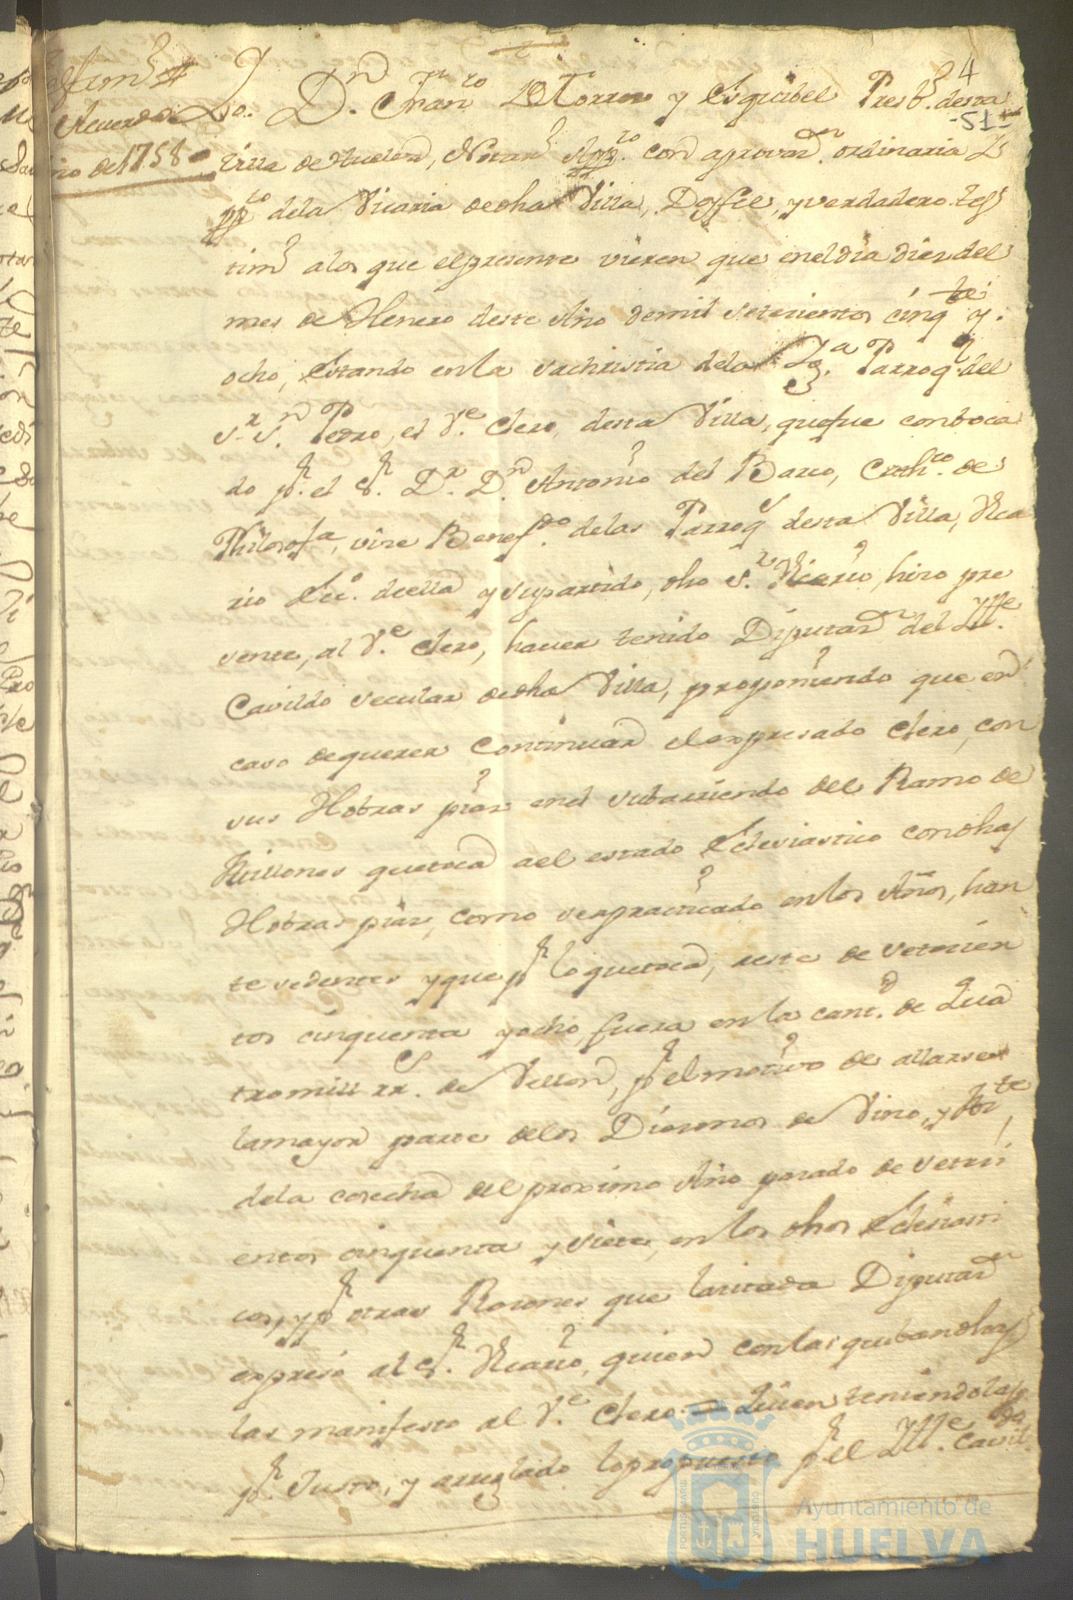 4
-51-
Acuerdo de
año de 1758
Yo. Dn. Franco. Torrero y Esquibel Presbo. desta
Villa de Huelva, Notaro. Appco. con aprovan. ordinaria
ppco. dela Vicaria de dha Villa, Doy fee, y verdadero tes
timo. a los que el presente vieren que en el dia dies del
mes de Henero deste Año de mil setesientos cinqta. y
ocho, Estando en la Sachristia dela Yga. Parroql. del
Sr. Sn. Pedro, el Ve. Clero, desta Villa, que fue conboca
do pr. el Sr. Dr. Dn. Antonio del Barco, Cathco. de
Philosofa., vice Benefdo. delas Parroqs. desta Villa, Vica
rio Ecco. de ella y su partido, dho Sr. Vicario, hizo pre
sente, al Ve. Clero, haver tenido Diputan. del Ille.
Cavildo secular de dha Villa, proponiendo que en
caso de querer continuar el expresado Clero, con
sus Hobras pias en el subarriendo del Ramo de
Millones que toca a el estado Eclesiastico con dhas
Hobras pias, como se a practicado en los Años, han
tesedentes y que pr. lo que toca, a este de setesien
tos cinquenta y ocho, fuera en la cantd. de Qua
tro mill rrs. de Vellon, pr. el motivo de allarse
la mayor parte de los Diesmos de Vino, y
dela cosecha del proximo Año pasado de setesi
entos cinquenta y siete, en los dhos Eclesiasti
cos, y pr. otras Rasones que la citada Diputan.
expreso al Sr. Vicario, quien con las que ban dhas
las manifesto al Ve. Clero = Quien teniendolas
pr. Justo, y arreglado lo propuesto pr. el Ille. Cavildo
Ayuntamiento de
HUELVA